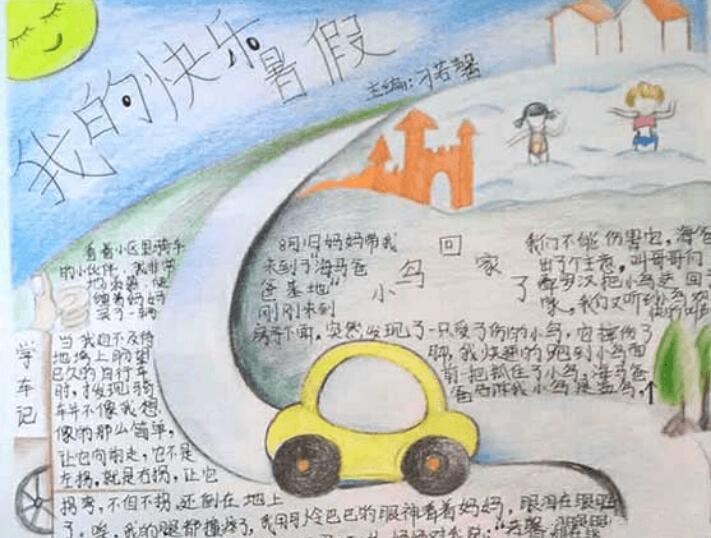 我的快乐暑假
主编:刁若馨
学车记
看着小区里骑车
的小伙伴,我非常
地羡慕,便
缠着妈妈
买了一辆
当我迫不及待
地骑上盼望
已久的自行车
时,才发现骑
车并不像我想
像的那么简单,
让它向前走,它不是
左拐,就是右拐,让它
拐弯,不但不拐,还倒在地上
了,唉,我的腿都撞疼了,我用可怜巴巴的眼神看着妈妈,眼泪在眼眶
小鸟回家了
8月1日妈妈带我
来到了"海马爸
爸基地"
刚刚来到
房子下面,突然发现了一只受了伤的小鸟,它摔伤了
我快速的跑到小鸟面
前一把抓住了小鸟,海马爸
爸告诉我小鸟是益鸟,
我们不能伤害它,海爸
出了个主意,叫哥哥们
把小鸟送回
家,我们又听到小鸟欢